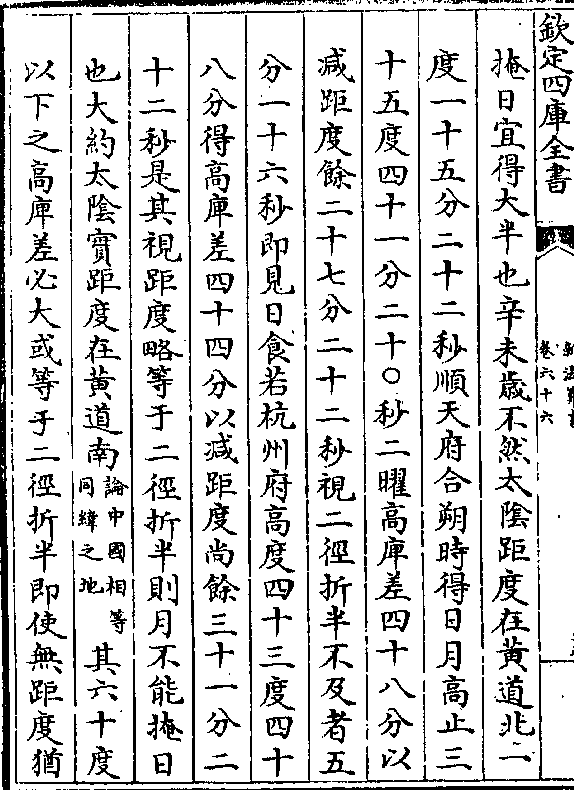 欽定四庫全書
卷六十六
掩日宜得大半也辛未歲不然太陰距度在黃道北一
度一十五分二十二秒順天府合朔時得日月高止三
十五度四十一分二十〇秒二曜高庫差四十八分以
減距度餘二十七分二十二秒視二徑折半不及者五
分一十六秒即見日食若杭州府高度四十三度四十
八分得高庫差四十四分以减距度尚餘三十一分二
十二秒是其視距度略等于二徑折半則月不能掩日
也大約太陰實距度在黃道南論中國相等同緯之地其六十度
以下之高庫差必大或等于二徑折半即使無距度猶